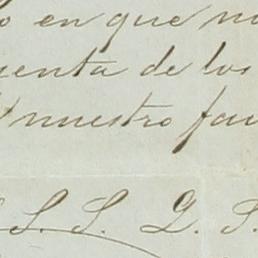 en que no
uenta de los
nuestro fav
S. S. Q. S.